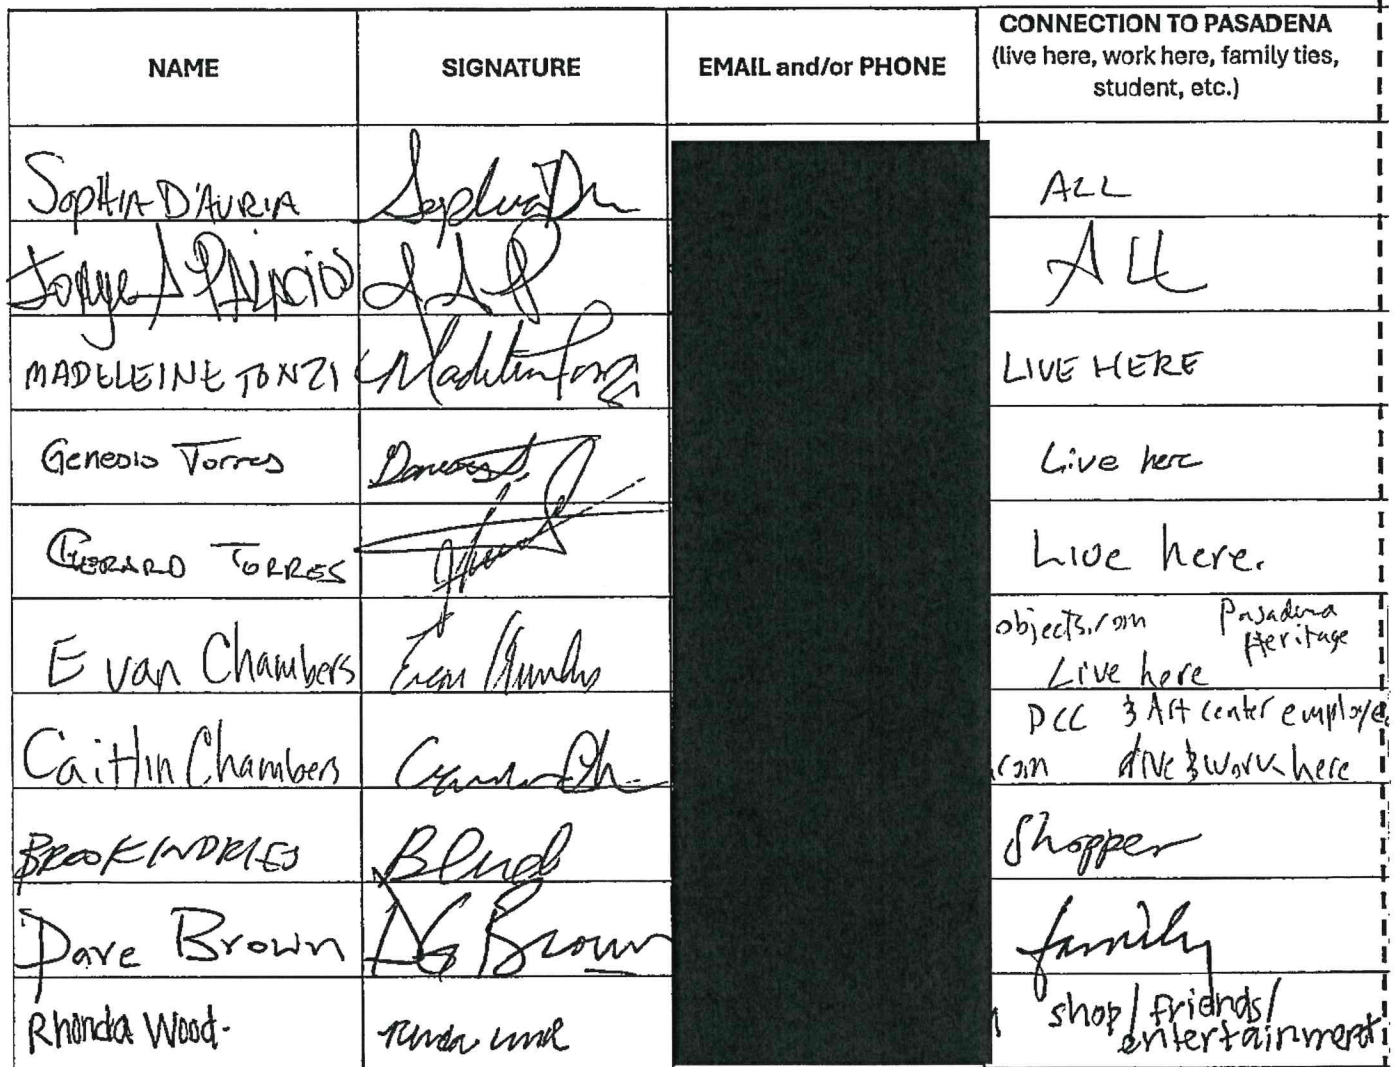 NAME
SIGNATURE
EMAIL and/or PHONE
CONNECTION TO PASADENA
(live here, work here, family ties,
student, etc.)
SOPHIA D'AURIA
ALL
Jorge A PALACIOS
ALL
MADELEINE TONZI
LIVE HERE
Genesis Torres
Live here
GERARD TORRES
Live here.
Evan Chambers
objects.com Pasadena
Heritage
Live here
Caitlin Chambers
PCC & Art center employee
com live & work here
Shopper
Dave Brown
DG Brown
family
Rhonda Wood
shop/friends/
entertainment